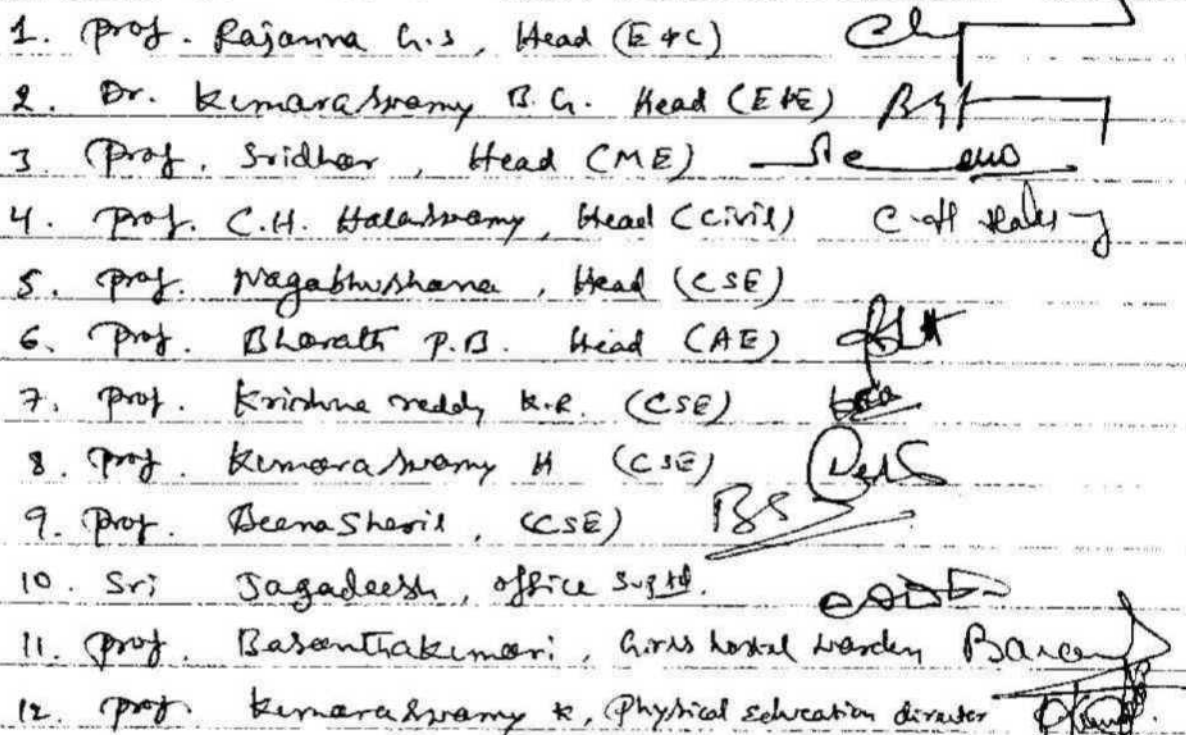 1. Prof. Rajanna G.S, Head (E&C)
2. Dr. Kumaraswamy B.G. Head (E&E)
3. Prof. Sridhar, Head (ME)
4. Prof. C.H. Halaswamy, Head (Civil)
5. Prof. Nagabhushana, Head (CSE)
6. Prof. Bharath P.B. Head (AE)
7. Prof. Krishna reddy K.R. (CSE)
8. Prof. Kumaraswamy H (CSE)
9. Prof. Beena Sheril, (CSE) BS
10. Sri Jagadeesh, office Suptd.
11. Prof. Basanthakumari, Girls hostel warden
12. Prof. Kumaraswamy K, Physical education director